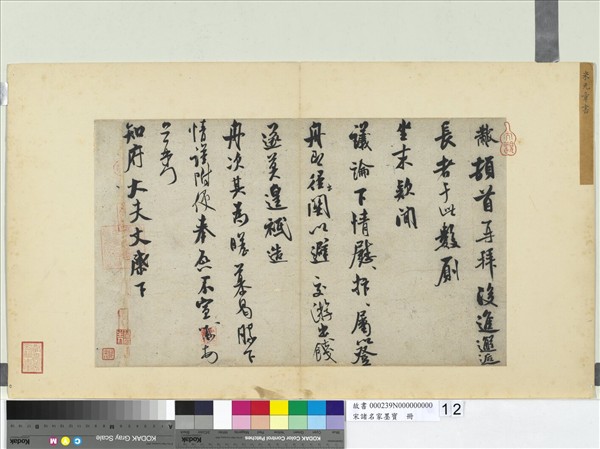 黻頓首再拜後進邂逅
長者于此數厠
坐末款聞
議論下情慰抃、屬以登
舟即徑出関以避交游出餞
遂莫遑祗造
舟次其為瞻慕曷勝下
情謹附便奉啓不宣黻頓首
知府大夫丈麾下
故書 000239N000000000
宋諸名家墨寶 冊
12
KODAK Color Control Patches
KODAK Gray Scale
Kodak
C
Y
M